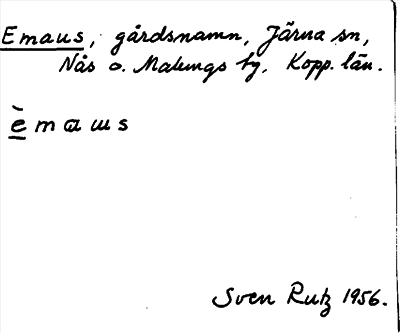 Emaus, gårdsnamn, Järna sn,
Nås o. Malungs tg. Kopp. län.
è̠mɑɯs
Sven Rutz 1956.